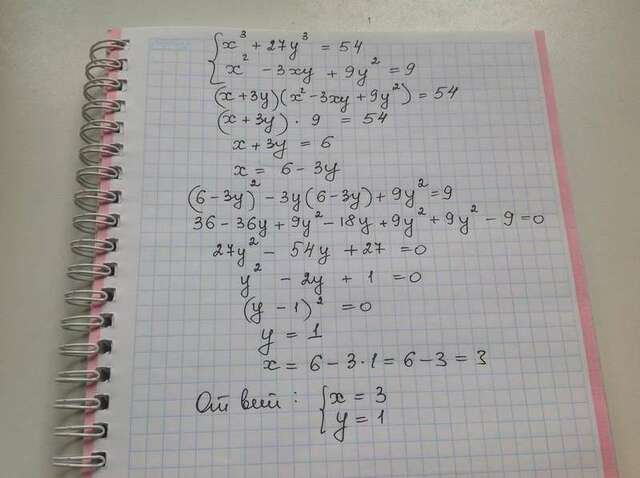 { x³ + 27y³ = 54
x² - 3xy + 9y² = 9
(x+3y)(x²-3xy+9y²) = 54
(x+3y) · 9 = 54
x + 3y = 6
x = 6 - 3y
(6-3y)² - 3y(6-3y) + 9y² = 9
36 - 36y + 9y² - 18y + 9y² + 9y² - 9 = 0
27y² - 54y + 27 = 0
y² - 2y + 1 = 0
(y - 1)² = 0
y = 1
x = 6 - 3·1 = 6 - 3 = 3
Ответ: { x = 3
y = 1